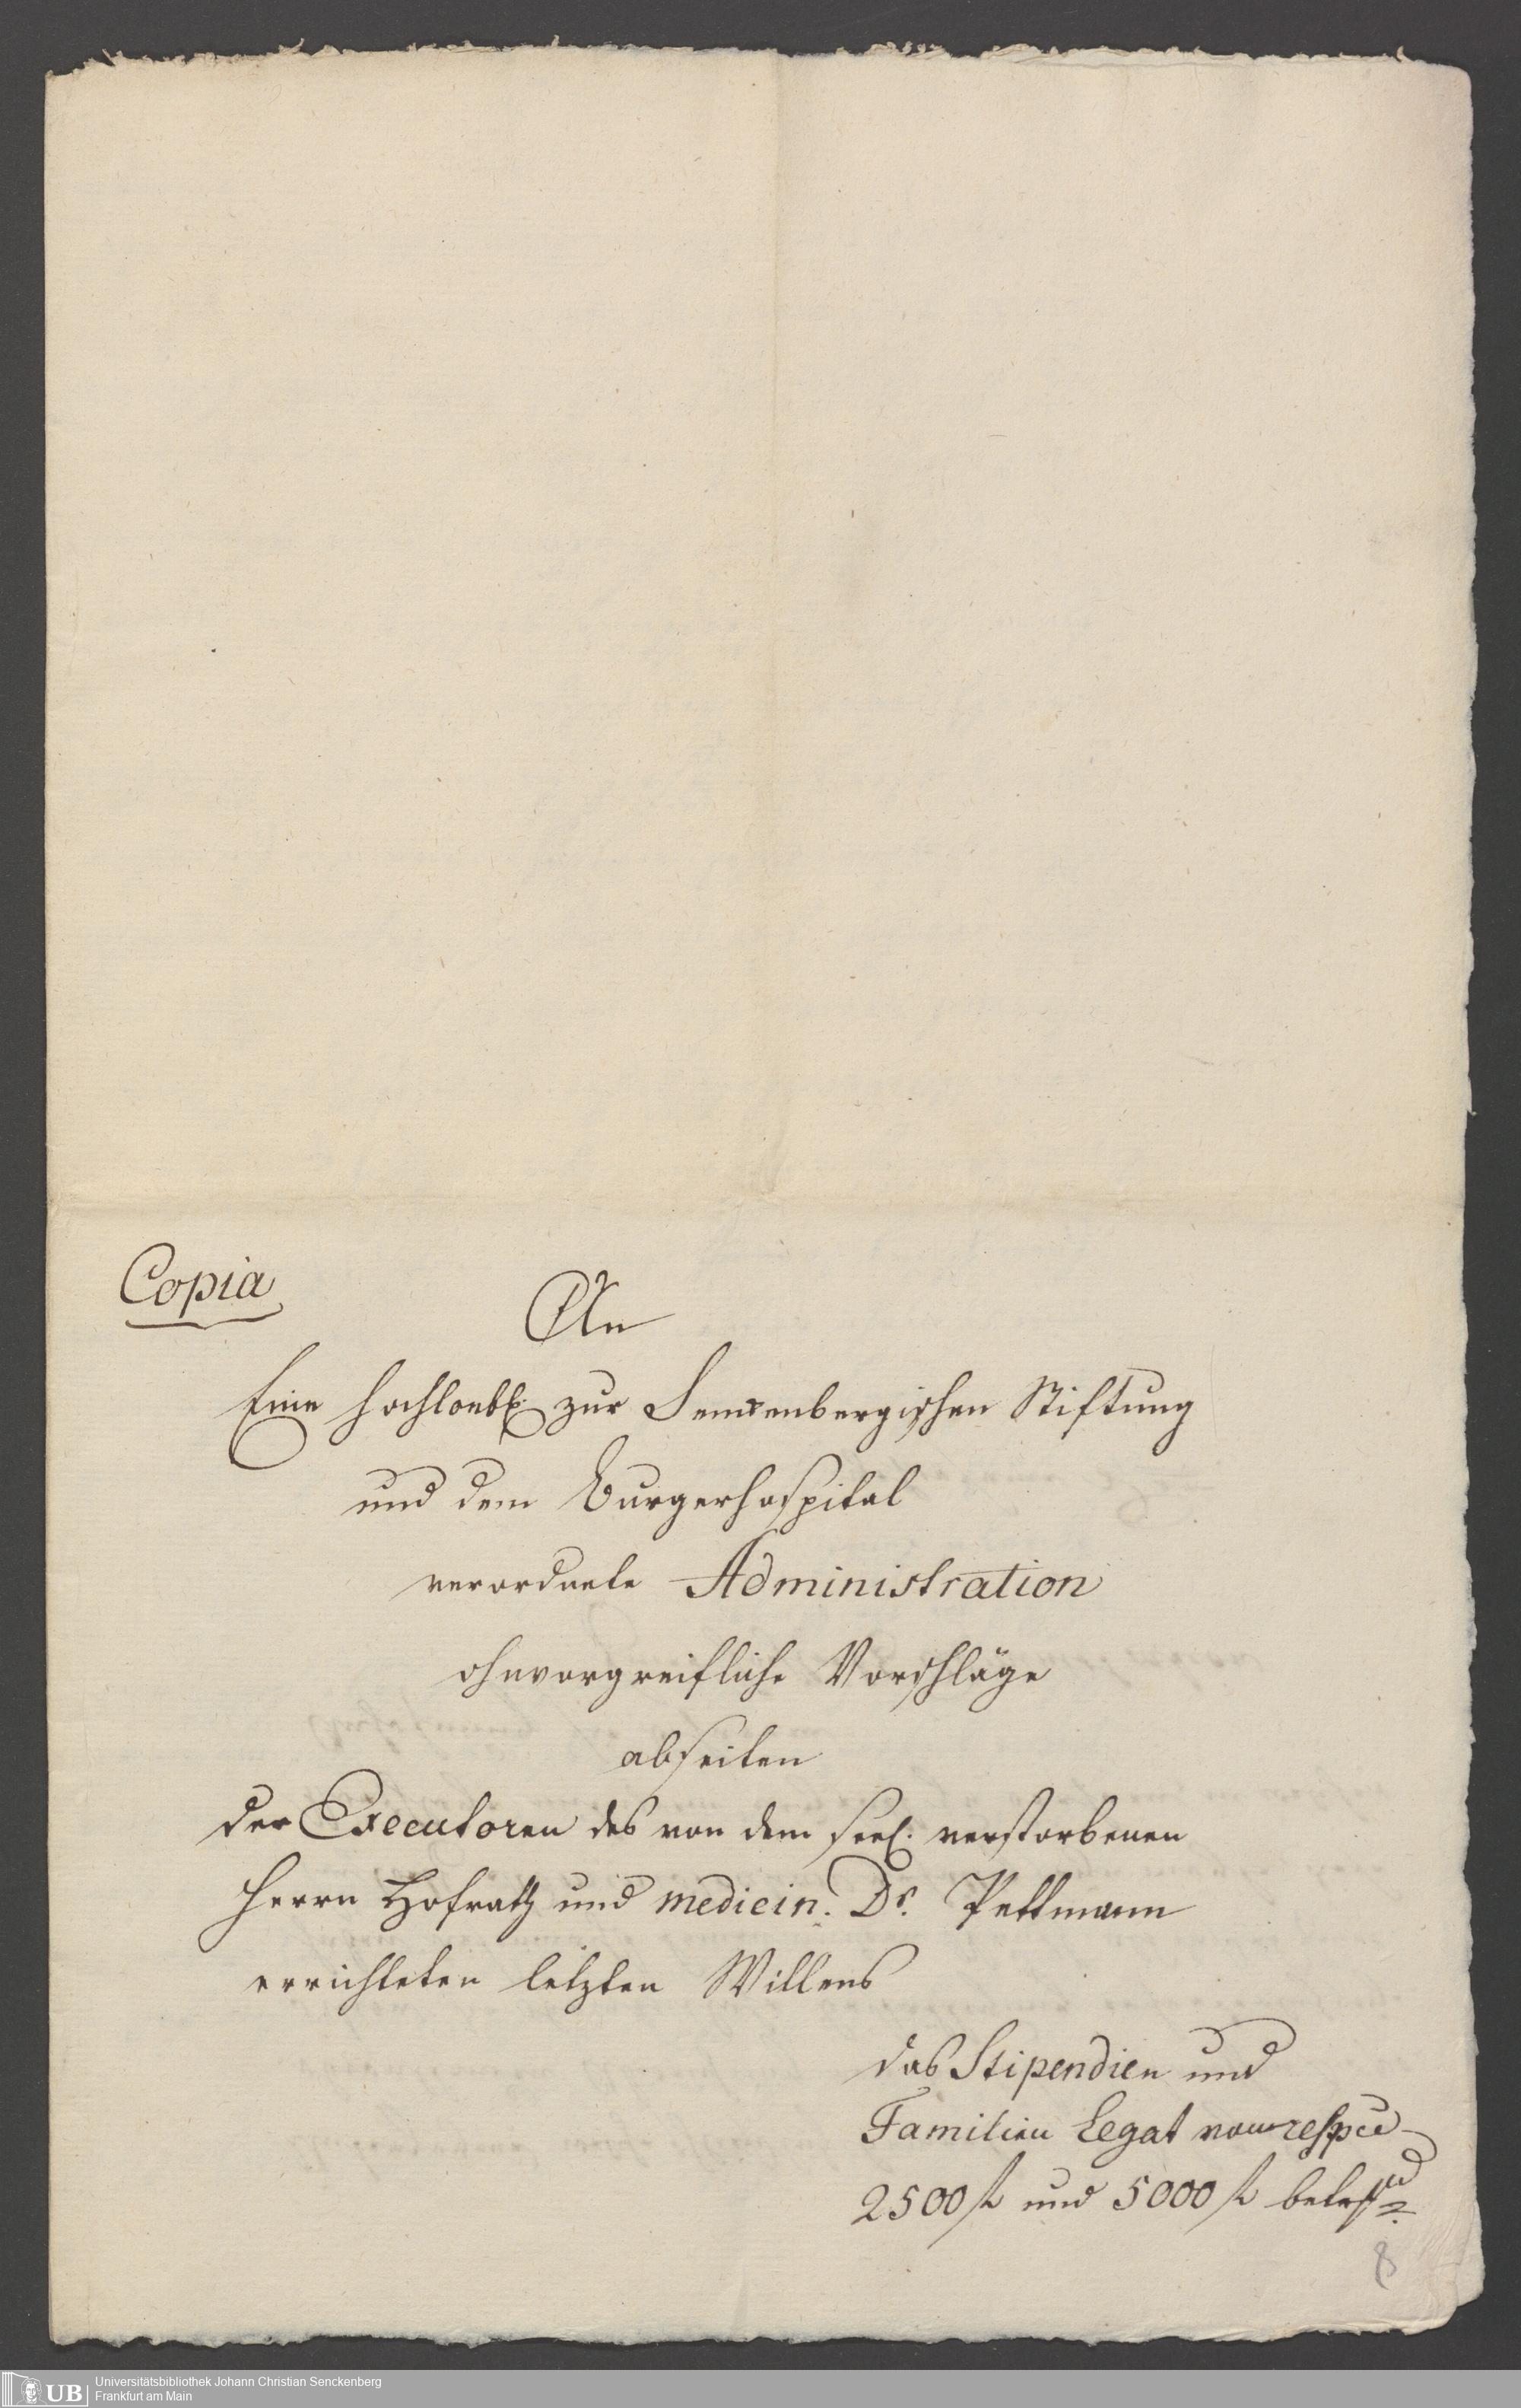 Copia
An
Eine hochloebl. zur Senckenbergischen Stiftung
und dem Burgerhospital
verordnete Administration
ohnvorgreifliche Vorschläge
abseiten
der Executoren des von dem seel. verstorbenen
Herrn Hofrath und medicin. Dr. Pettmann
errichteten letzten Willens
das Stipendien und
Familien Legat von respve
2500 fl und 5000 fl betrfd
8
UB
Universitätsbibliothek Johann Christian Senckenberg
Frankfurt am Main